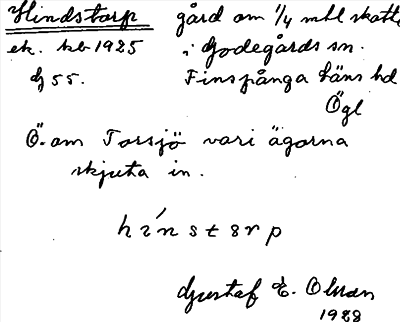 Hindstorp gård om 1/4 mtl skatte
ek. kb 1925 i Godegårds sn.
G 55. Finspånga läns hd
Ögl
Ö. om Torsjö vari ägorna
skjuta in.
Gustaf E. Olsson